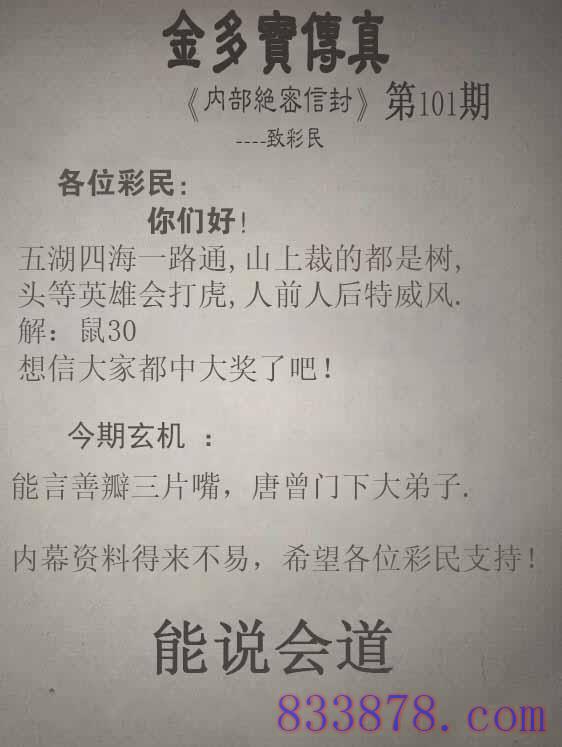 金多寶傳真
《内部絕密信封》第101期
----致彩民
各位彩民:
你们好!
五湖四海一路通,山上裁的都是树,
头等英雄会打虎,人前人后特威风.
解：鼠30
想信大家都中大奖了吧!
今期玄机 ：
能言善瓣三片嘴，唐曾门下大弟子.
内幕资料得来不易，希望各位彩民支持!
能说会道
833878.com